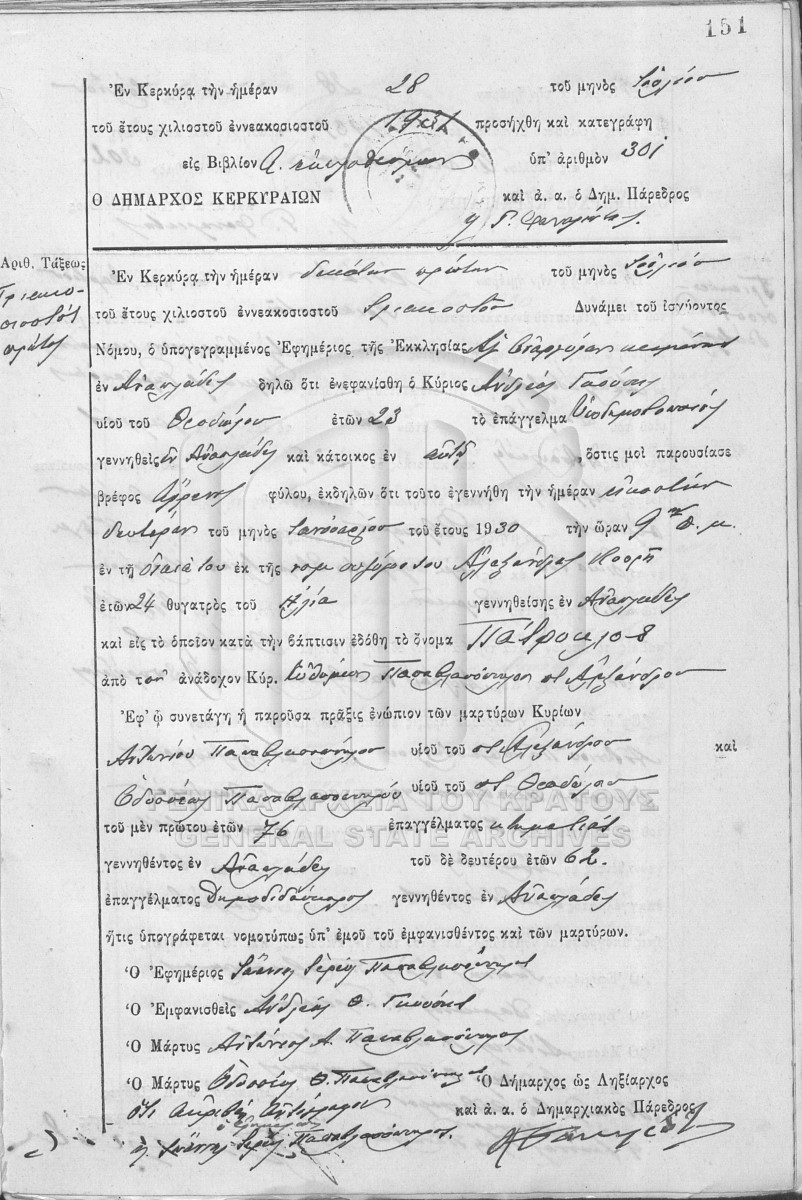 151
Ἐν Κερκύρᾳ τὴν ἡμέραν 28 τοῦ μηνὸς Ἰουλίου
τοῦ ἔτους χιλιοστοῦ ἐννεακοσιοστοῦ προσήχθη καὶ κατεγράφη
εἰς Βιβλίον Α. ὑπ' ἀριθμὸν 301
Ο ΔΗΜΑΡΧΟΣ ΚΕΡΚΥΡΑΙΩΝ καὶ ἀ. α. ὁ Δημ. Πάρεδρος
Γ.
Αριθ. Τάξεως
Τριακο-
σιοστός
πρῶτος
Ἐν Κερκύρᾳ τὴν ἡμέραν δεκάτην πρώτην τοῦ μηνὸς Ἰουλίου
τοῦ ἔτους χιλιοστοῦ ἐννεακοσιοστοῦ τριακοστοῦ Δυνάμει τοῦ ἰσχύοντος
Νόμου, ὁ ὑπογεγραμμένος Ἐφημέριος τῆς Ἐκκλησίας
ἐν Ἀναπλάδες δηλῶ ὅτι ἐνεφανίσθη ὁ Κύριος Ἀνδρέας
υἱοῦ τοῦ Θεοδώρου ἐτῶν 23 τὸ ἐπάγγελμα Ὑποδηματοποιός
γεννηθεὶς ἐν Ἀναπλάδες καὶ κάτοικος ἐν αὐτῇ, ὅστις μοὶ παρουσίασε
βρέφος ἄρρενος φύλου, ἐκδηλῶν ὅτι τοῦτο ἐγεννήθη τὴν ἡμέραν εἰκοστήν
δευτέραν τοῦ μηνὸς Ἰανουαρίου τοῦ ἔτους 1930 τὴν ὥραν 9ην π. μ.
ἐν τῇ οἰκίᾳ του ἐκ τῆς νομ συζύγου του Ἀλεξάνδρας
ἐτῶν 24 θυγατρὸς τοῦ Ἠλία γεννηθείσης ἐν Ἀναπλάδες
καὶ εἰς τὸ ὁποῖον κατὰ τὴν βάπτισιν ἐδόθη τὸ ὄνομα Πάτροκλος
ἀπὸ τον ἀνάδοχον Κύρ. Εὐθύμιον Παπαβλασόπουλον τοῦ Ἀλεξάνδρου
Ἐφ' ᾧ συνετάγη ἡ παροῦσα πρᾶξις ἐνώπιον τῶν μαρτύρων Κυρίων
Ἀντωνίου Παπαβλασοπούλου υἱοῦ τοῦ Ἀλεξάνδρου καὶ
Ὀδυσσέως Παπαβλασοπούλου υἱοῦ τοῦ Θεοδώρου
ΓΕΝΙΚΑ ΑΡΧΕΙΑ ΤΟΥ ΚΡΑΤΟΥΣ
τοῦ μὲν πρώτου ἐτῶν 76 ἐπαγγέλματος κτηματίας
GENERAL STATE ARCHIVES
γεννηθέντος ἐν Ἀναπλάδες τοῦ δὲ δευτέρου ἐτῶν 62.
ἐπαγγέλματος Δημοδιδάσκαλος γεννηθέντος ἐν Ἀναπλάδες
ἥτις ὑπογράφεται νομοτύπως ὑπ' ἐμοῦ τοῦ ἐμφανισθέντος καὶ τῶν μαρτύρων.
Ὁ Ἐφημέριος Ἰωάννης Ἱερεύς Παπαβλασόπουλος
Ὁ Ἐμφανισθεὶς Ἀνδρέας Θ.
Ὁ Μάρτυς Ἀντώνιος Α. Παπαβλασόπουλος
Ὁ Μάρτυς Ὀδυσσεύς Θ. Παπαβλασόπουλος Ὁ Δήμαρχος ὡς Ληξίαρχος
Ὅτι ἀκριβές ἀντίγραφον καὶ ἀ. α. ὁ Δημαρχιακὸς Πάρεδρος
ὁ Ἐφημέριος
Ἰωάννης Ἱερεύς Παπαβλασόπουλος.